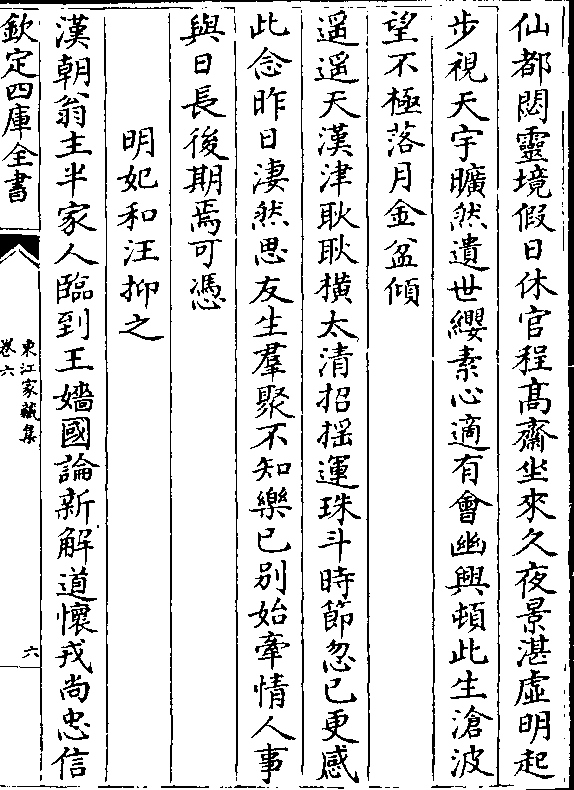 仙都閟靈境假日休官程髙齋坐來久夜景湛虛明起
步視天宇曠然遺世纓素心適有會幽興頓此生滄波
望不極落月金盆傾
遥遥天漢津耿耿横太清招揺運珠斗時節忽已更感
此念昨日淒然思友生羣聚不知樂已别始牽情人事
與日長後期焉可憑
明妃和汪抑之
漢朝翁主半家人臨到王嬙國論新解道懷戎尚忠信
欽定四庫全書
東江家藏集
卷六
六